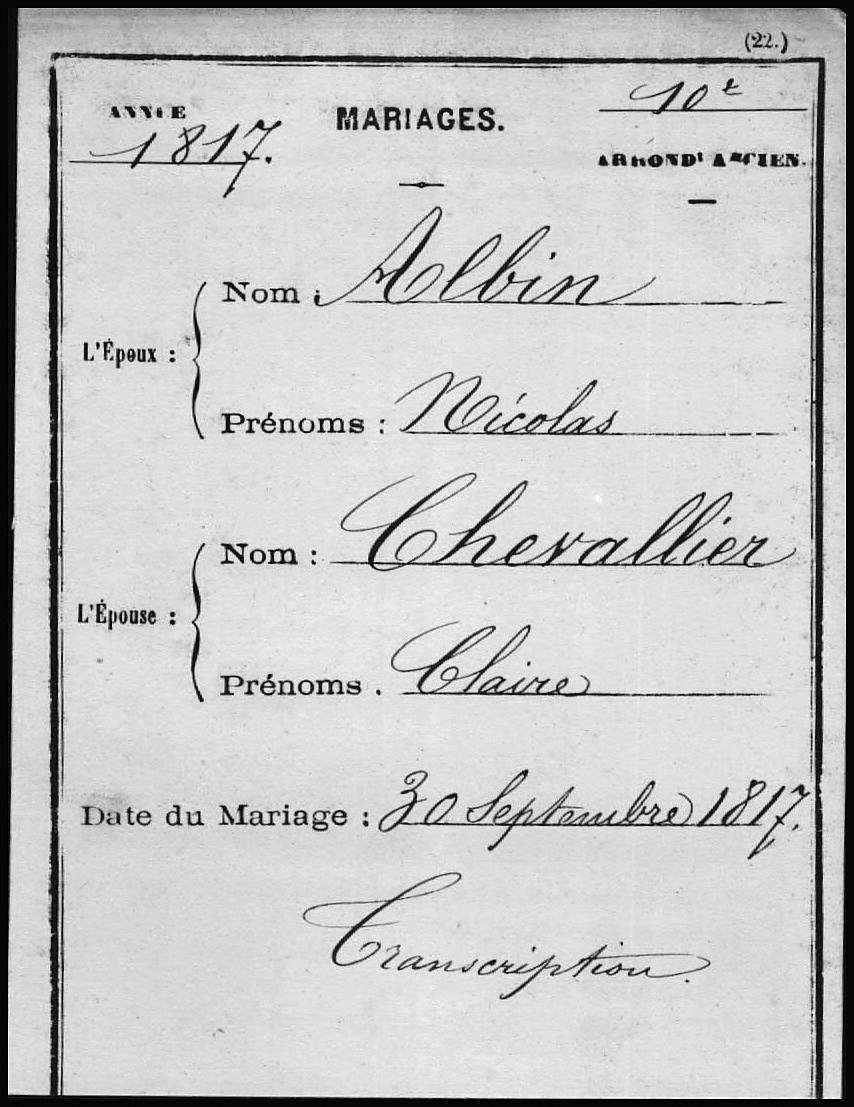 (22.)
ANNÉE
1817.
MARIAGES.
10e
ARRONDt ANCIEN.
L'Époux :
Nom : Albin
Prénoms : Nicolas
L'Épouse :
Nom : Chevallier
Prénoms . Claire
Date du Mariage : 30 Septembre 1817.
Transcription.